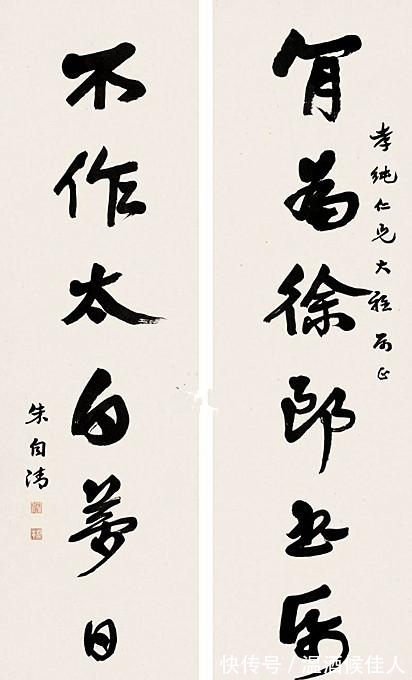 孝純仁兄大雅属正
肎為徐郎书帋
不作太白夢日
朱自清
快传号 / 温酒候佳人